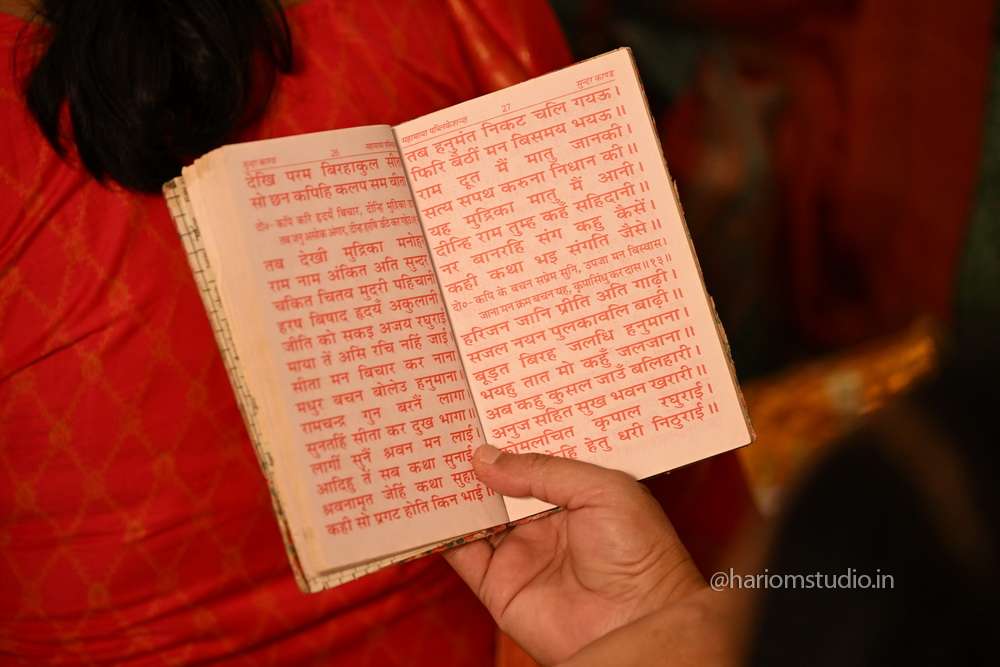 सुन्दर काण्ड 26
देखि परम बिरहाकुल
सो छन कपिहि कलप सम
दो०- कपि करि हृदयँ बिचार, दीन्हि मुद्रिका
जनु असोक अंगार, दीन्ह हरषि उठि कर
तब देखी मुद्रिका मनोहर
राम नाम अंकित अति सुन्दर
चकित चितव मुदरी पहिचानी
हरष बिषाद हृदयँ अकुलानी
जीति को सकइ अजय रघुराई
माया तें असि रचि नहिं जाई
सीता मन बिचार कर नाना
मधुर बचन बोलेउ हनुमाना
रामचन्द्र गुन बरनैं लागा
सुनतहिं सीता कर दुख भागा॥
लागीं सुनैं श्रवन मन लाई
आदिहु तें सब कथा सुनाई
श्रवनामृत जेहिं कथा सुहाई
कही सो प्रगट होति किन भाई॥
27 सुन्दर काण्ड
तब हनुमंत निकट चलि गयऊ।
फिरि बैठीं मन बिसमय भयऊ॥
राम दूत मैं मातु जानकी।
सत्य सपथ करुना निधान की॥
यह मुद्रिका मातु मैं आनी।
दीन्हि राम तुम्ह कहँ सहिदानी॥
नर बानरहि संग कहु कैसें।
कही कथा भइ संगति जैसें॥
दो०- कपि के बचन सप्रेम सुनि, उपजा मन बिस्वास।
जाना मन क्रम बचन यह, कृपासिंधु कर दास॥१३॥
हरिजन जानि प्रीति अति गाढ़ी।
सजल नयन पुलकावलि बाढ़ी॥
बूड़त बिरह जलधि हनुमाना।
भयहु तात मो कहुँ जलजाना॥
अब कहु कुसल जाउँ बलिहारी।
अनुज सहित सुख भवन खरारी॥
कोमलचित कृपाल रघुराई।
हेतु धरी निठुराई॥
@hariomstudio.in